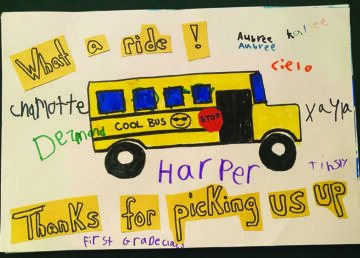 What a ride !
Aubree
Aubree
Kailee
Cielo
Charlotte
Yaya
Desmond
COOL BUS
STOP
Harper
Tinsly
Thanks for picking us up
First Grade class